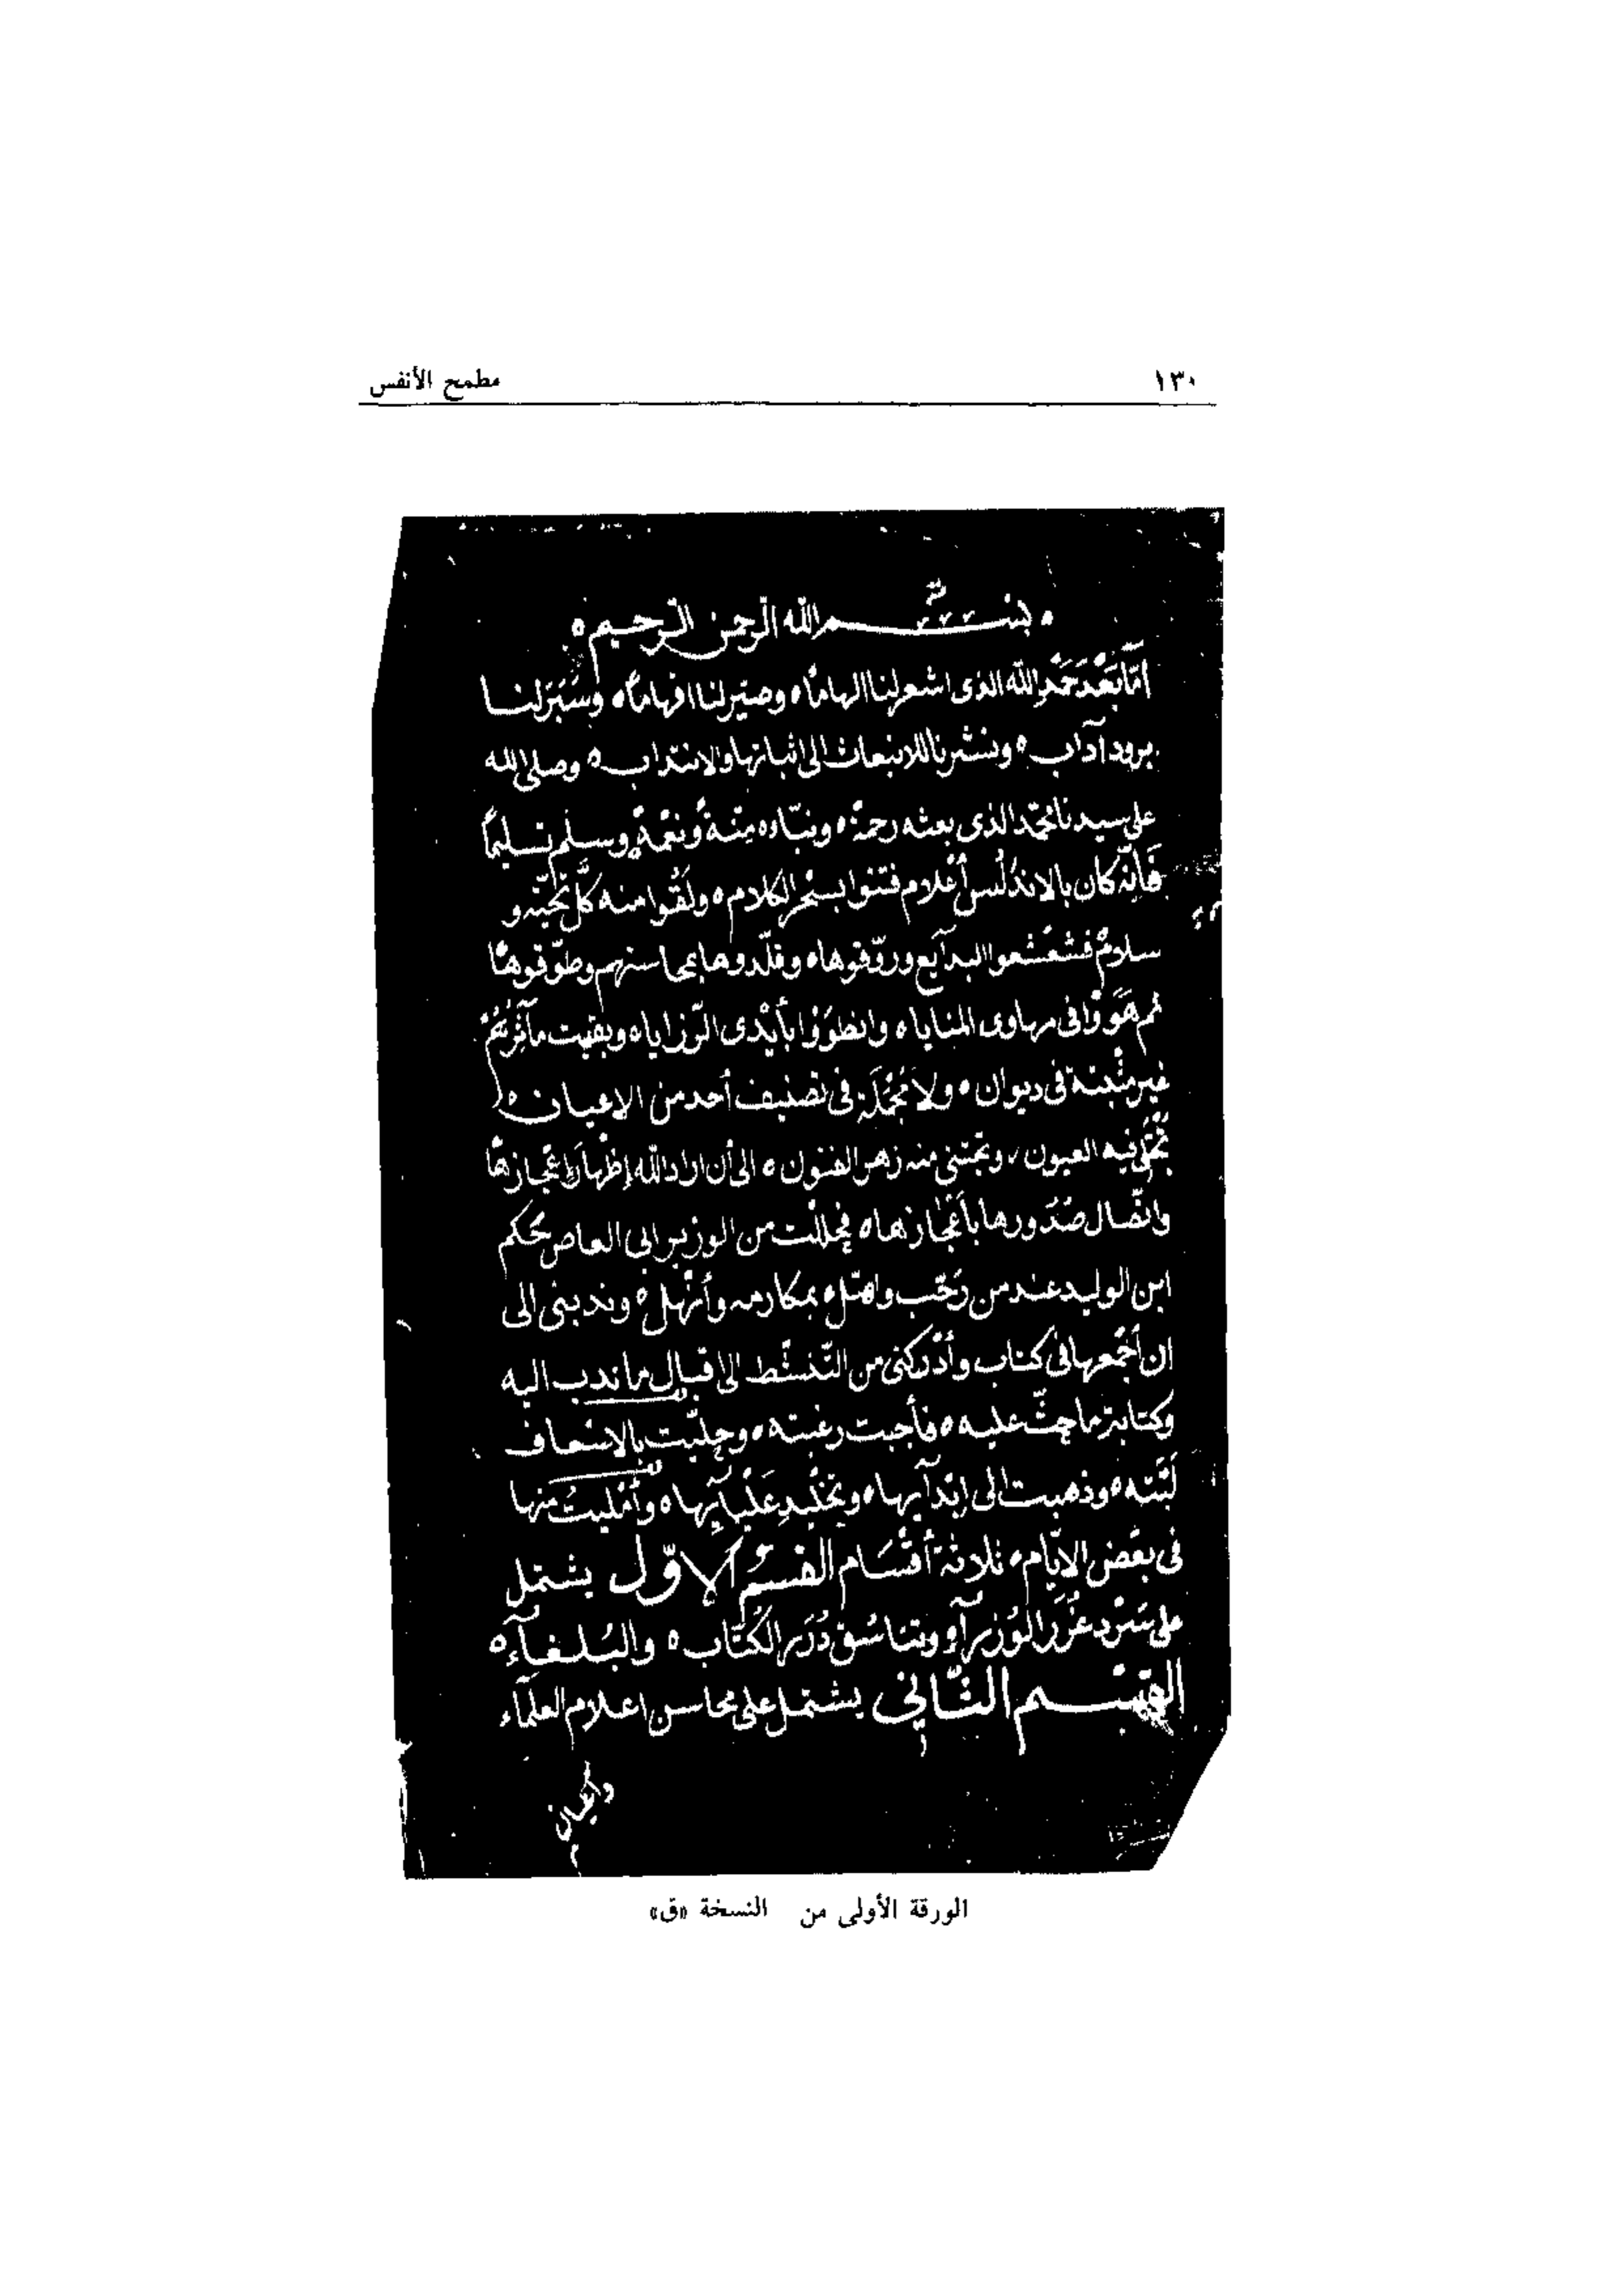 ١٣٠ مطمح الأنفس
بسم الله الرحمن الرحيم
أمّا بعد حمد الله الذى اشعرلنا الهامًا وصيّرلنا افهامًا وسيّرلنا
برود آداب ونشرنا للانبعاث الى اثباتها والانتداب وصلى الله
على سيدنا محمّد الذى بعثه رحمة ونبّاه منّةً ونعمةً وسلم تسليمًا
فانّه كان بالاندلس أعلام فتنوا بسحر الكلام ولقوا منه كلّ تحيّة و
سلام فشعشعوا البدآيع وروّقوها وقلّدوها بمحاسنهم وطوّقوها
ثم هَوَوْا فى مهاوى المنايا وانطوَوْا بأيْدى الرّزايا وبقيت مآثرهُمْ
غير مثبتة فى ديوان ولا مُجْملَة فى تصنيف أحد من الاعيان
تجتلى فيه العيون وتجتنى منه زهر الفنون الى أن اراد الله إظهار إعجازها
واتّصال صُدورها بأعْجازها فحللت من الوزير ابى العاص حكم
ابن الوليد عند من رَحّب واهّل بمكارمه وأنهل وندبنى الى
ان أجْمعها فى كتاب وأدْركنى من التّنشّط الى اقبال ما ندب اليه
وكتابة ما حثّ عليه فأجبت رغبته وحلّيت بالاسْعاف
لبّته وذهبت الى إبْدآيها وتخْليدِ عَلْيآيِها وأمْليْتُ منها
فى بعْض الايّام ثلاثة أقْسَام القسم الاوّل يشتمل
على سَرْد غُرَر الوُزرآء وتناسُق دُرَر الكُتّاب والبُلغآء
القسم الثّاني يشتمل على محاسن اعلام العلمآء
الورقة الأولى من النسخة «ق»